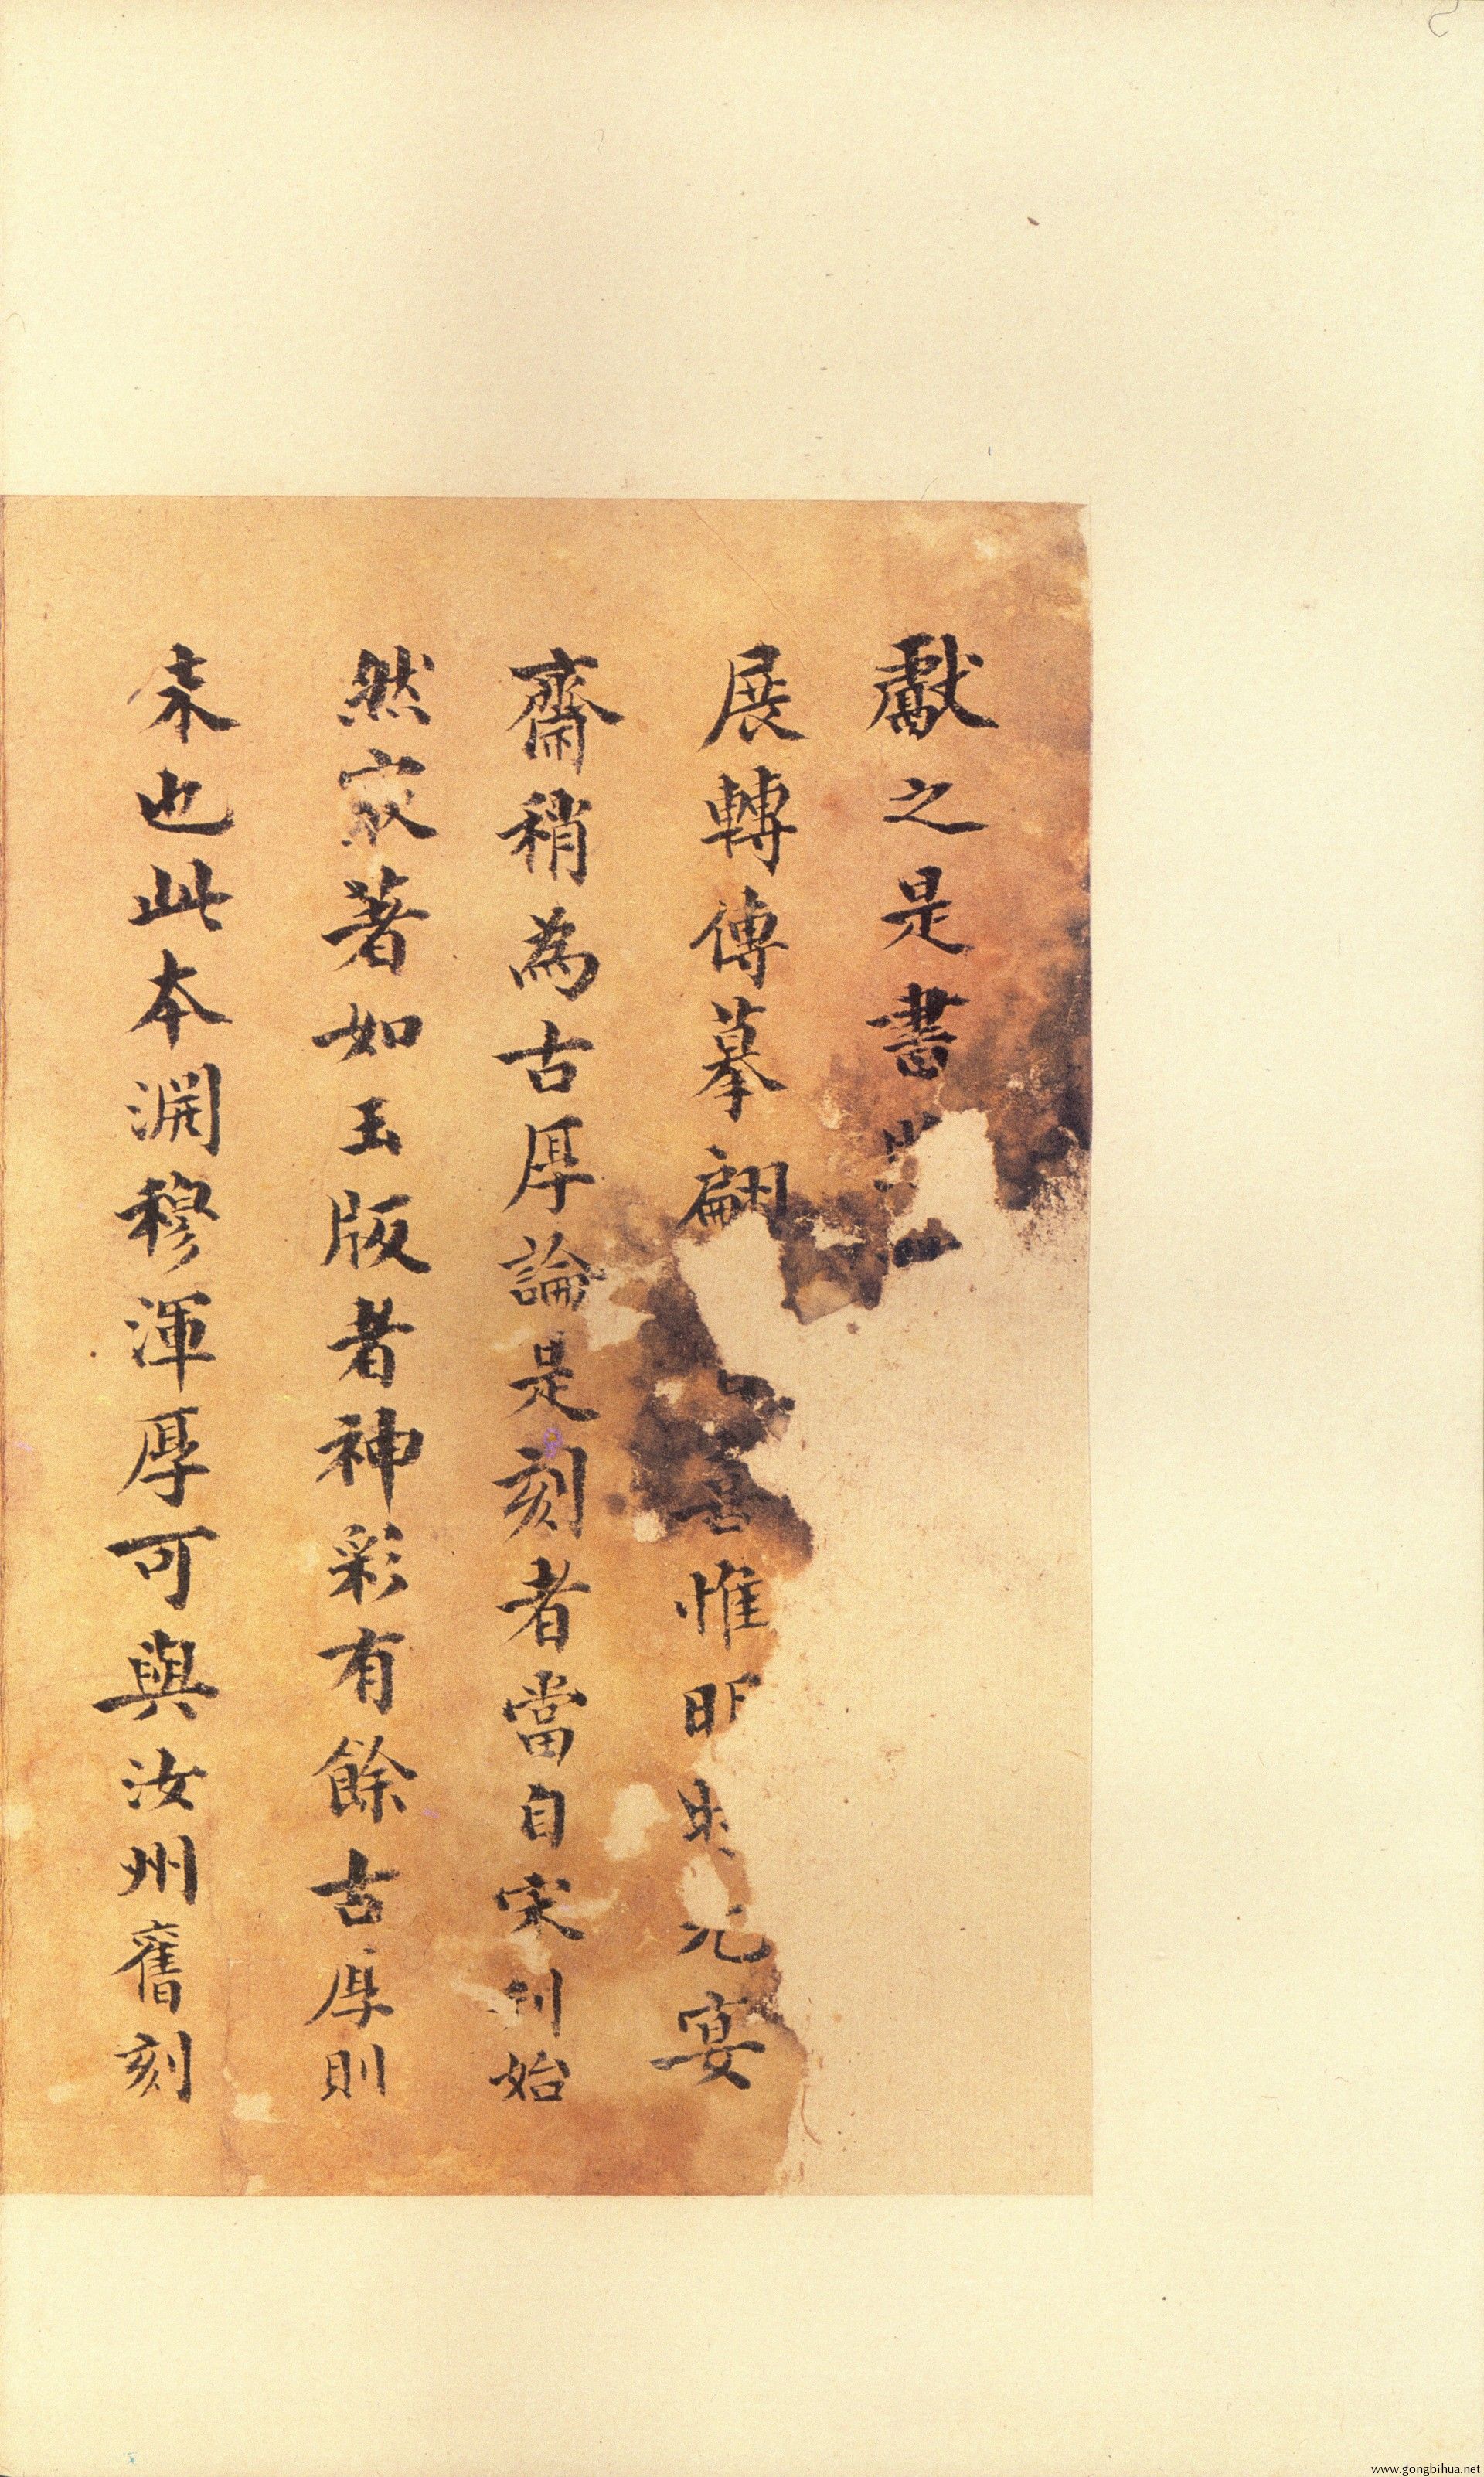 獻之是書
展轉傳摹翩吾惟明元宴
齋稍為古厚論是刻者當自宋刊始
然㝡著如玉版者神彩有餘古厚則
未也此本淵穆渾厚可與汝州舊刻
www.gongbihua.net